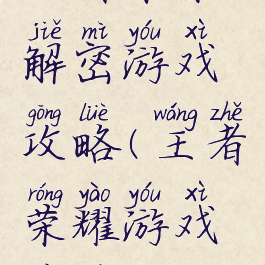 jiě mì yóu xì
解密游戏
gōng lüè wáng zhě
攻略(王者
róng yào yóu xì
荣耀游戏